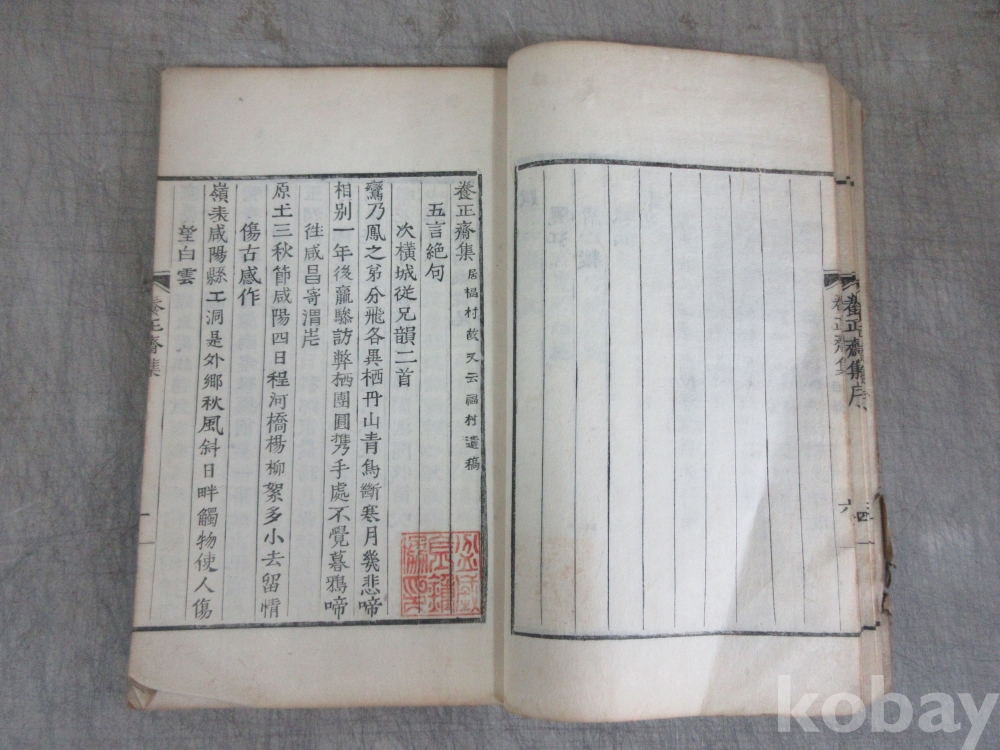 養正齋集序
六
養正齋集 居楅村故又云福村遺稿
五言絶句
次橫城從兄韻二首
鸞乃鳳之苐分飛各異栖丹山靑鳥斷寒月幾悲啼
相別一年後羸驂訪弊栖團圓携手處不覺暮鴉啼
徃咸昌寄渭岸
原土三秋節咸陽四日程河橋楊柳絮多小去留情
傷古感作
嶺表咸陽縣工洞是外鄉秋風斜日畔觸物使人傷
望白雲
養正齋集
一
kobay